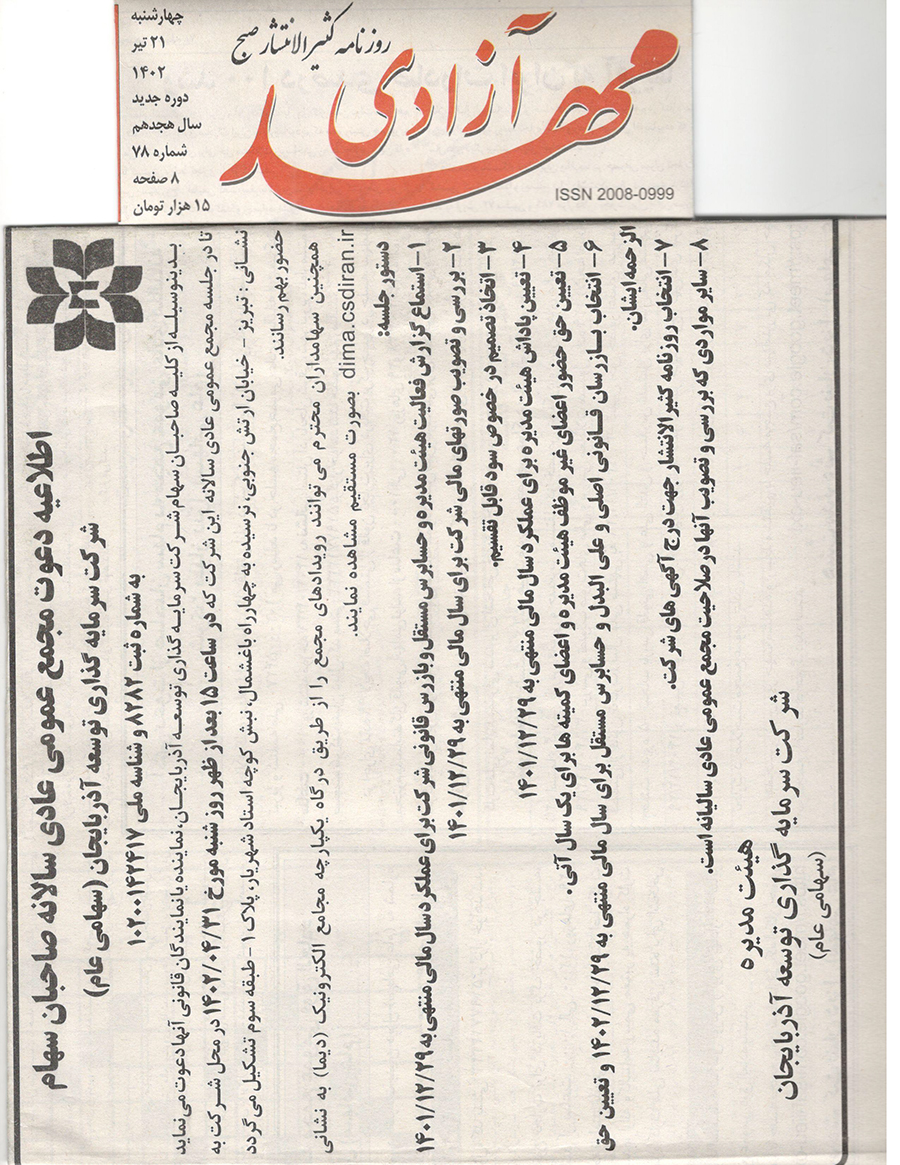 چهارشنبه
۲۱ تیر
۱۴۰۲
دوره جدید
سال هجدهم
شماره ۷۸
۸ صفحه
۱۵ هزار تومان
روزنامه کثیرالانتشار صبح
مهد آزادی
ISSN 2008-0999
اطلاعیه دعوت مجمع عمومی عادی سالانه صاحبان سهام
شرکت سرمایه گذاری توسعه آذربایجان (سهامی عام)
به شماره ثبت ۸۲۸۲ و شناسه ملی ۱۰۲۰۰۱۴۲۴۱۷
بدینوسیله از کلیه صاحبان سهام شرکت سرمایه گذاری توسعه آذربایجان، نماینده یا نمایندگان قانونی آنها دعوت می نماید
تا در جلسه مجمع عمومی عادی سالانه این شرکت که در ساعت ۱۵ بعد از ظهر روز شنبه مورخ ۱۴۰۲/۰۴/۳۱ در محل شرکت به
نشانی : تبریز - خیابان ارتش جنوبی، نرسیده به چهارراه باغشمال، نبش کوچه استاد شهریار، پلاک ۱ - طبقه سوم تشکیل می گردد
حضور بهم رسانند.
همچنین سهامداران محترم می توانند رویدادهای مجمع را از طریق درگاه یکپارچه مجامع الکترونیک (دیما) به نشانی
dima.csdiran.ir بصورت مستقیم مشاهده نمایند.
دستور جلسه:
۱- استماع گزارش فعالیت هیئت مدیره و حسابرس مستقل و بازرس قانونی شرکت برای عملکرد سال مالی منتهی به ۱۴۰۱/۱۲/۲۹
۲- بررسی و تصویب صورتهای مالی شرکت برای سال مالی منتهی به ۱۴۰۱/۱۲/۲۹
۳- اتخاذ تصمیم در خصوص سود قابل تقسیم.
۴- تعیین پاداش هیئت مدیره برای عملکرد سال مالی منتهی به ۱۴۰۱/۱۲/۲۹
۵- تعیین حق حضور اعضای غیر موظف هیئت مدیره و اعضای کمیته ها برای یک سال آتی.
۶- انتخاب بازرسان قانونی اصلی و علی البدل و حسابرس مستقل برای سال مالی منتهی به ۱۴۰۲/۱۲/۲۹ و تعیین حق
الزحمه ایشان.
۷- انتخاب روزنامه کثیرالانتشار جهت درج آگهی های شرکت.
۸- سایر مواردی که بررسی و تصویب آنها در صلاحیت مجمع عمومی عادی سالیانه است.
هیئت مدیره
شرکت سرمایه گذاری توسعه آذربایجان
(سهامی عام)